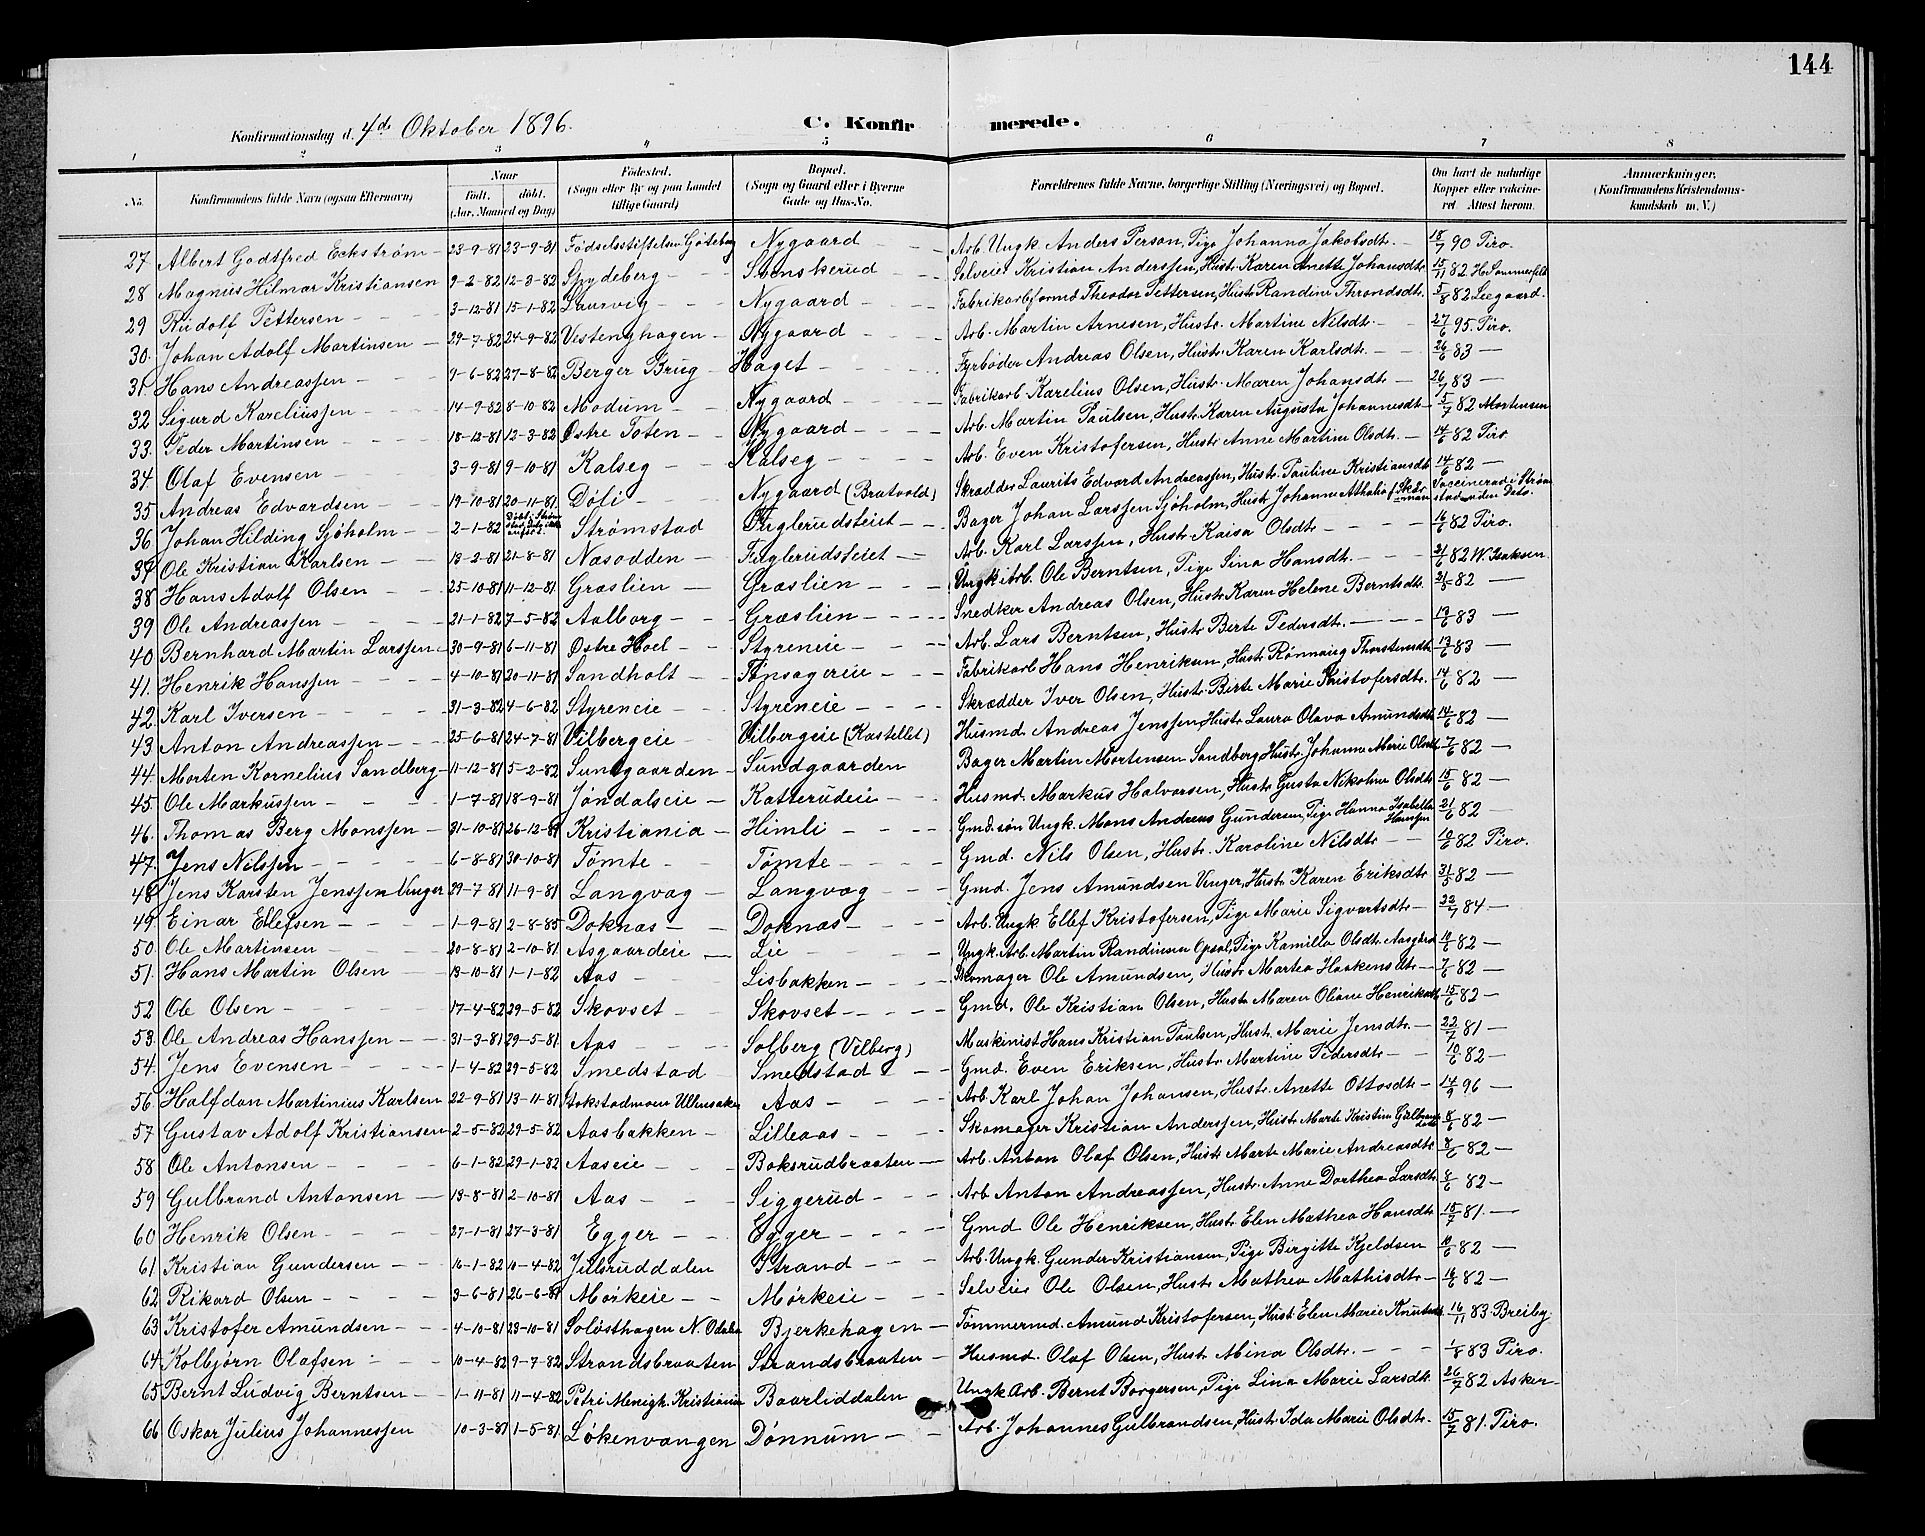 144
Konfirmationsdag d. 4de Oktober 1896. C. Konfirmerede.
1 2 3 4 5 6 7 8
No. Konfirmandens fulde Navn (ogsaa Efternavn) Naar Födt. döbt. (Aar, Maaned og Dag) Födested. (Sogn eller By og paa Landet tillige Gaard) Bopæl. (Sogn og Gaard eller i Byerne Gade og Hus-No. Forældrenes fulde Navne, borgerlige Stilling (Næringsvei) og Bopæl. Om havt de naturlige Kopper eller vaccineret. Attest herom. Anmærkninger. (Konfirmandens Kristendomskundskab m. V.)
27 Albert Godtfred Eckstrøm 23-9-81 23-9-81 Fødselsstiftelsen Gøteborg Nygaard Arb. Ungk. Anders Person, Pige Johanna Jakobsdtr. 18/7 90 Piro.
28 Magnus Hilmar Kristiansen 9-2-82 12-3-82 Spydeberg Svenskerud Selveier Kristian Anderssen, Hustr. Karen Anette Johansdtr. 15/11 82 H. Sommerfelt
29 Rudolf Pettersen 3-12-81 15-1-82 Laurvig Nygaard Fabrikarbformd Theodor Pettersen, Hustr. Randine Throndsdtr. 5/8 82 Leegaard.
30. Johan Adolf Martinsen 29-7-82 24-9-82 Vestenghagen Nygaard Arb. Martin Arnesen, Hustr. Martine Nilsdtr. 27/6 95. Piro.
31. Hans Andreassen 9-6-82 27-8-82 Berger Brug Haget Fyrbøder Andreas Olsen, Hustr. Karen Karlsdtr. 26/6 83 —
32 Sigurd Kareliussen 14-9-82 8-10-82 Modum Nygaard Fabrikarb. Karelius Olsen, Hustr. Maren Johansdtr 26/7 83 —
33. Peder Martinsen 18-12-81 12-3-82 Østre Toten Nygaard Arb. Martin Paulsen, Hustr. Karen Augusta Johannesdtr 5/7 82 Mortensen
34. Olaf Evensen 3-9-81 9-10-81 Kalseg Kalseg Arb. Even Kristofersen, Hustr. Anne Martine Olsdtr. 14/6 82 Piro
35 Andreas Edvardsen 19-10-81 20-11-81 Døli Nygaard (Bratvold) Skrædder Laurits Edvard Andreassen, Hustr. Pauline Kristiansdtr 14/6 82 —
36 Johan Hilding Sjøholm 2-1-82 Strømstad Fuglerudseiet Bager Johan Larssen Sjøholm, Hustr. Johanne Athalia f. Vaccinerad i Strømstad uden Dato.
37 Ole Kristian Karlsen 13-2-81 21-8-81 Næsodden Fuglerudseiet Arb. Karl Larssen, Hustr. Kaisa Olsdtr 16/6 82 Piro.
38 Hans Adolf Olsen 25-10-81 11-12-81 Græslien Græslien Ungk. Arb. Ole Berntsen, Pige Lina Hansdtr. 21/6 82 W. Isaksen
39 Ole Andreassen 21-1-82 7-5-82 Aalborg Græslien Snedker Andreas Olsen, Hustr. Karen Helene Berntsdtr. 31/5 82 —
40 Bernhard Martin Larssen 30-9-81 6-11-81 Østre Hoel Styreneie Arb. Lars Berntsen, Hustr. Berte Pedersdtr. 13/6 83 —
41. Henrik Hanssen 4-10-81 20-11-81 Sandholt Tønsagereie Fabrikarb Hans Henriksen, Hustr. Rønnaug Thorstensdtr 13/6 83 —
42. Karl Iversen 31-3-82 4-6-82 Styreneie Styreneie Skrædder Iver Olsen, Hustr. Birte Marie Kristofersdtr. 14/6 82 —
43 Anton Andreassen 25-6-81 24-7-81 Vilbergeie Vilbergeie (Kastellet) Husmd. Andreas Jenssen, Hustr. Laura Olava Amundsdtr. 14/6 82 —
44. Morten Kornelius Sandberg 11-12-81 5-2-82 Sundgaarden Sundgaarden Bager Martin Mortensen Sandberg Hustr. Johanne Marie Olsdtr 7/6 82 —
45. Ole Markussen 1-7-81 18-9-81 Jøndalseie Katterudeie Husmd. Markus Halvorsen, Hustr. Gusta Nikoline Olsdtr. 15/6 82 —
46. Thomas Berg Monssen 31-10-81 26-12-81 Kristiania Himli Gmd. søn Ungk. Mons Andreas Gundersen, Pige Hanna Isabella Hanssen 21/6 82 —
47. Jens Nilssen 6-8-81 30-10-81 Tømte Tømte Gmd. Nils Olsen, Hustr. Karoline Nilsdtr 10/6 82 Piro.
48 Jens Karsten Jenssen Unger 29-7-81 11-9-81 Langvag Langvag Gmd. Jens Amundsen Unger, Hustr. Karen Eriksdtr. 31/5 82 —
49. Einar Ellefsen 1-9-81 2-8-85 Doknæs Doknæs Arb. Ungk Ellef Kristofersen, Pige Marie Sigvartsdtr 22/7 84. —
50. Ole Martinsen 20-8-81 2-10-81 Asgaardeie Lie Ungk. Arb. Martin Randinius Opsal, Pige Kamilla Olsdtr. Aasgaard 10/6 82 —
51. Hans Martin Olsen 13-10-81 1-1-82 Aas Lisbakken Skomager Ole Amundsen, Hustr. Marthea Haakensdtr. 7/6 82 —
52 Ole Olsen 17-4-82 29-5-82 Skovset Skovset Gmd. Ole Kristian Olsen, Hustr. Maren Oliane Henriksdtr 15/6 82 —
53. Ole Andreas Hanssen 31-3-81 29-5-81 Aas Solberg (Vilberg) Maskinist Hans Kristian Paulsen, Hustr. Marie Jensdtr. 22/7 81 —
54. Jens Evensen 1-4-82 29-5-82 Smedstad Smedstad Gmd. Even Eriksen, Hustr. Martine Pedersdtr 10/6 82 —
56. Halfdan Martinius Karlsen 22-9-81 13-11-81 Jokstadmoen Ullensaker Aas Arb. Karl Johan Johansen, Hustr. Anette Ottosdtr 14/9 96 —
57 Gustav Adolf Kristiansen 2-5-82 29-5-82 Aasbakken Lilleaas Skomager Kristian Anderssen, Hustr. Marte Kristine Gulbrandsdtr 8/6 82 —
58 Ole Antonsen 6-1-82 29-1-82 Aaseie Boksrudbraaten Arb. Anton Olaf Olsen, Hustr. Marte Marie Andreasdtr 8/6 82 —
59 Gulbrand Antonsen 13-8-81 2-10-81 Aas Siggerud Arb. Anton Andreassen, Hustr. Anne Dorthea Larsdtr. 8/6 82 —
60 Henrik Olsen 27-1-81 27-3-81 Egger Egger Gmd Ole Henriksen, Hustr. Elen Mathea Hansdtr 15/7 81. —
61 Kristian Gundersen 16-1-82 10-4-82 Julsruddalen Strand Arb. Ungk. Gunder Kristiansen, Pige Birgitte Kjeldsen 10/6 82 —
62 Rikard Olsen 3-6-81 26-6-81 Mørkeie Mørkeie Selveier Ole Olsen, Hustr. Mathea Mathisdtr 14/6 82 —
63 Kristofer Amundsen 4-10-81 23-10-81 Solvsthagen N. Odalen Bjerkehagen Tømmermd. Amund Kristofersen, Hustr. Elen Marie Knutsdtr 16/11 83 Breiby
64 Kolbjørn Olafsen 10-4-82 9-7-82 Strandsbraaten Strandsbraaten Husmd. Olaf Olsen, Hustr. Mina Olsdtr. 1/8 83 Piro.
65 Bernt Ludvig Berntsen 1-11-81 11-4-82 Petri Menigh. Kristiania Baarliddalen Ungk Arb. Bernt Borgersen, Pige Lina Marie Larsdtr. 26/7 82 Asker
66 Oskar Julius Johannessen 10-3-81 1-5-81 Løkenvangen Dønnum Arb. Johannes Gulbrandsen, Hustr. Ida Marie Olsdtr. 15/7 81. Piro.